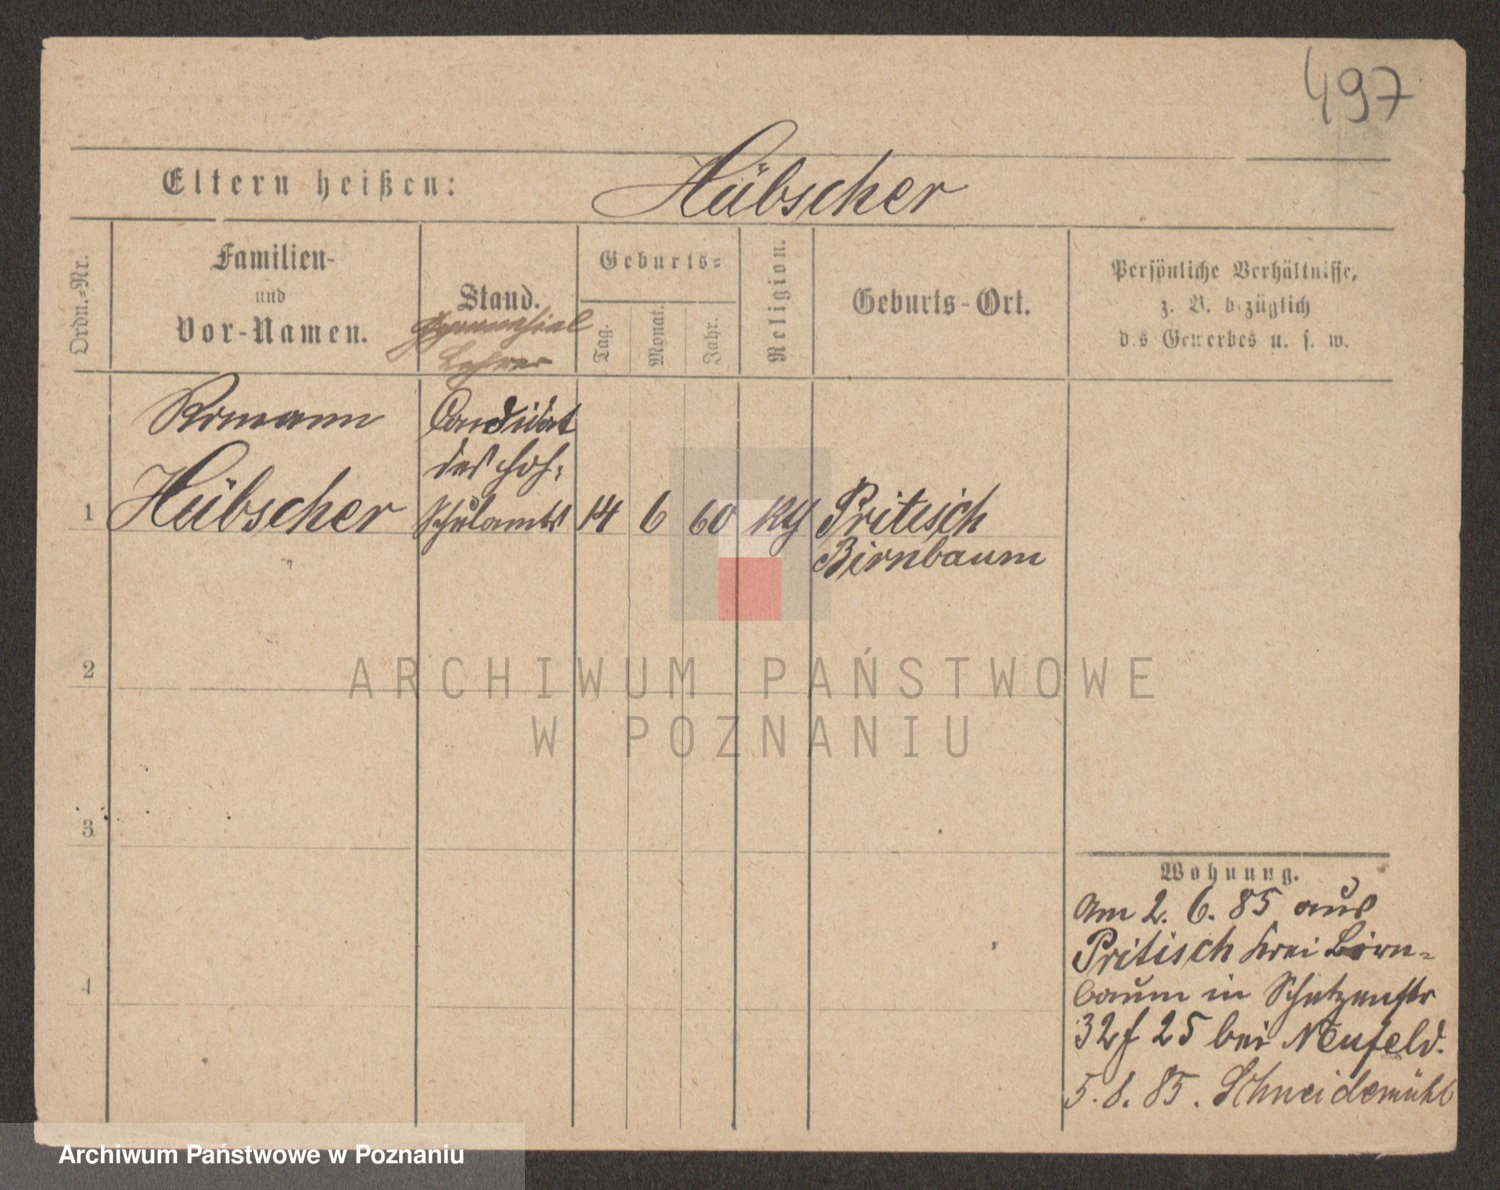 497
Eltern heißen: Hübscher
Ordn.-Nr.
Familien-
und
Vor-Namen.
Stand.
Gymnasial
Lehrer
Geburts-
Tag.
Monat.
Jahr.
Religion.
Geburts-Ort.
Persönliche Verhältnisse,
z. B. bezüglich
des Gewerbes u. s. w.
Candidat
des höh:
1 Hübscher Schulamts 14 6 60 Pritisch
Birnbaum
2
ARCHIWUM PAŃSTWOWE
W POZNANIU
3
4
Wohnung.
Am 2. 6. 85 aus
Pritisch Krei Birn-
baum in Schützenstr
32 25 bei Neufeld.
5. 8. 85. Schneidemühl
Archiwum Państwowe w Poznaniu